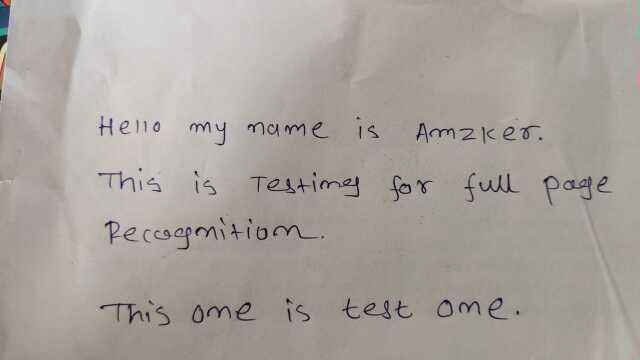 Hello my name is Amzker.
This is Testing for full page
Recognition.
This one is test one.